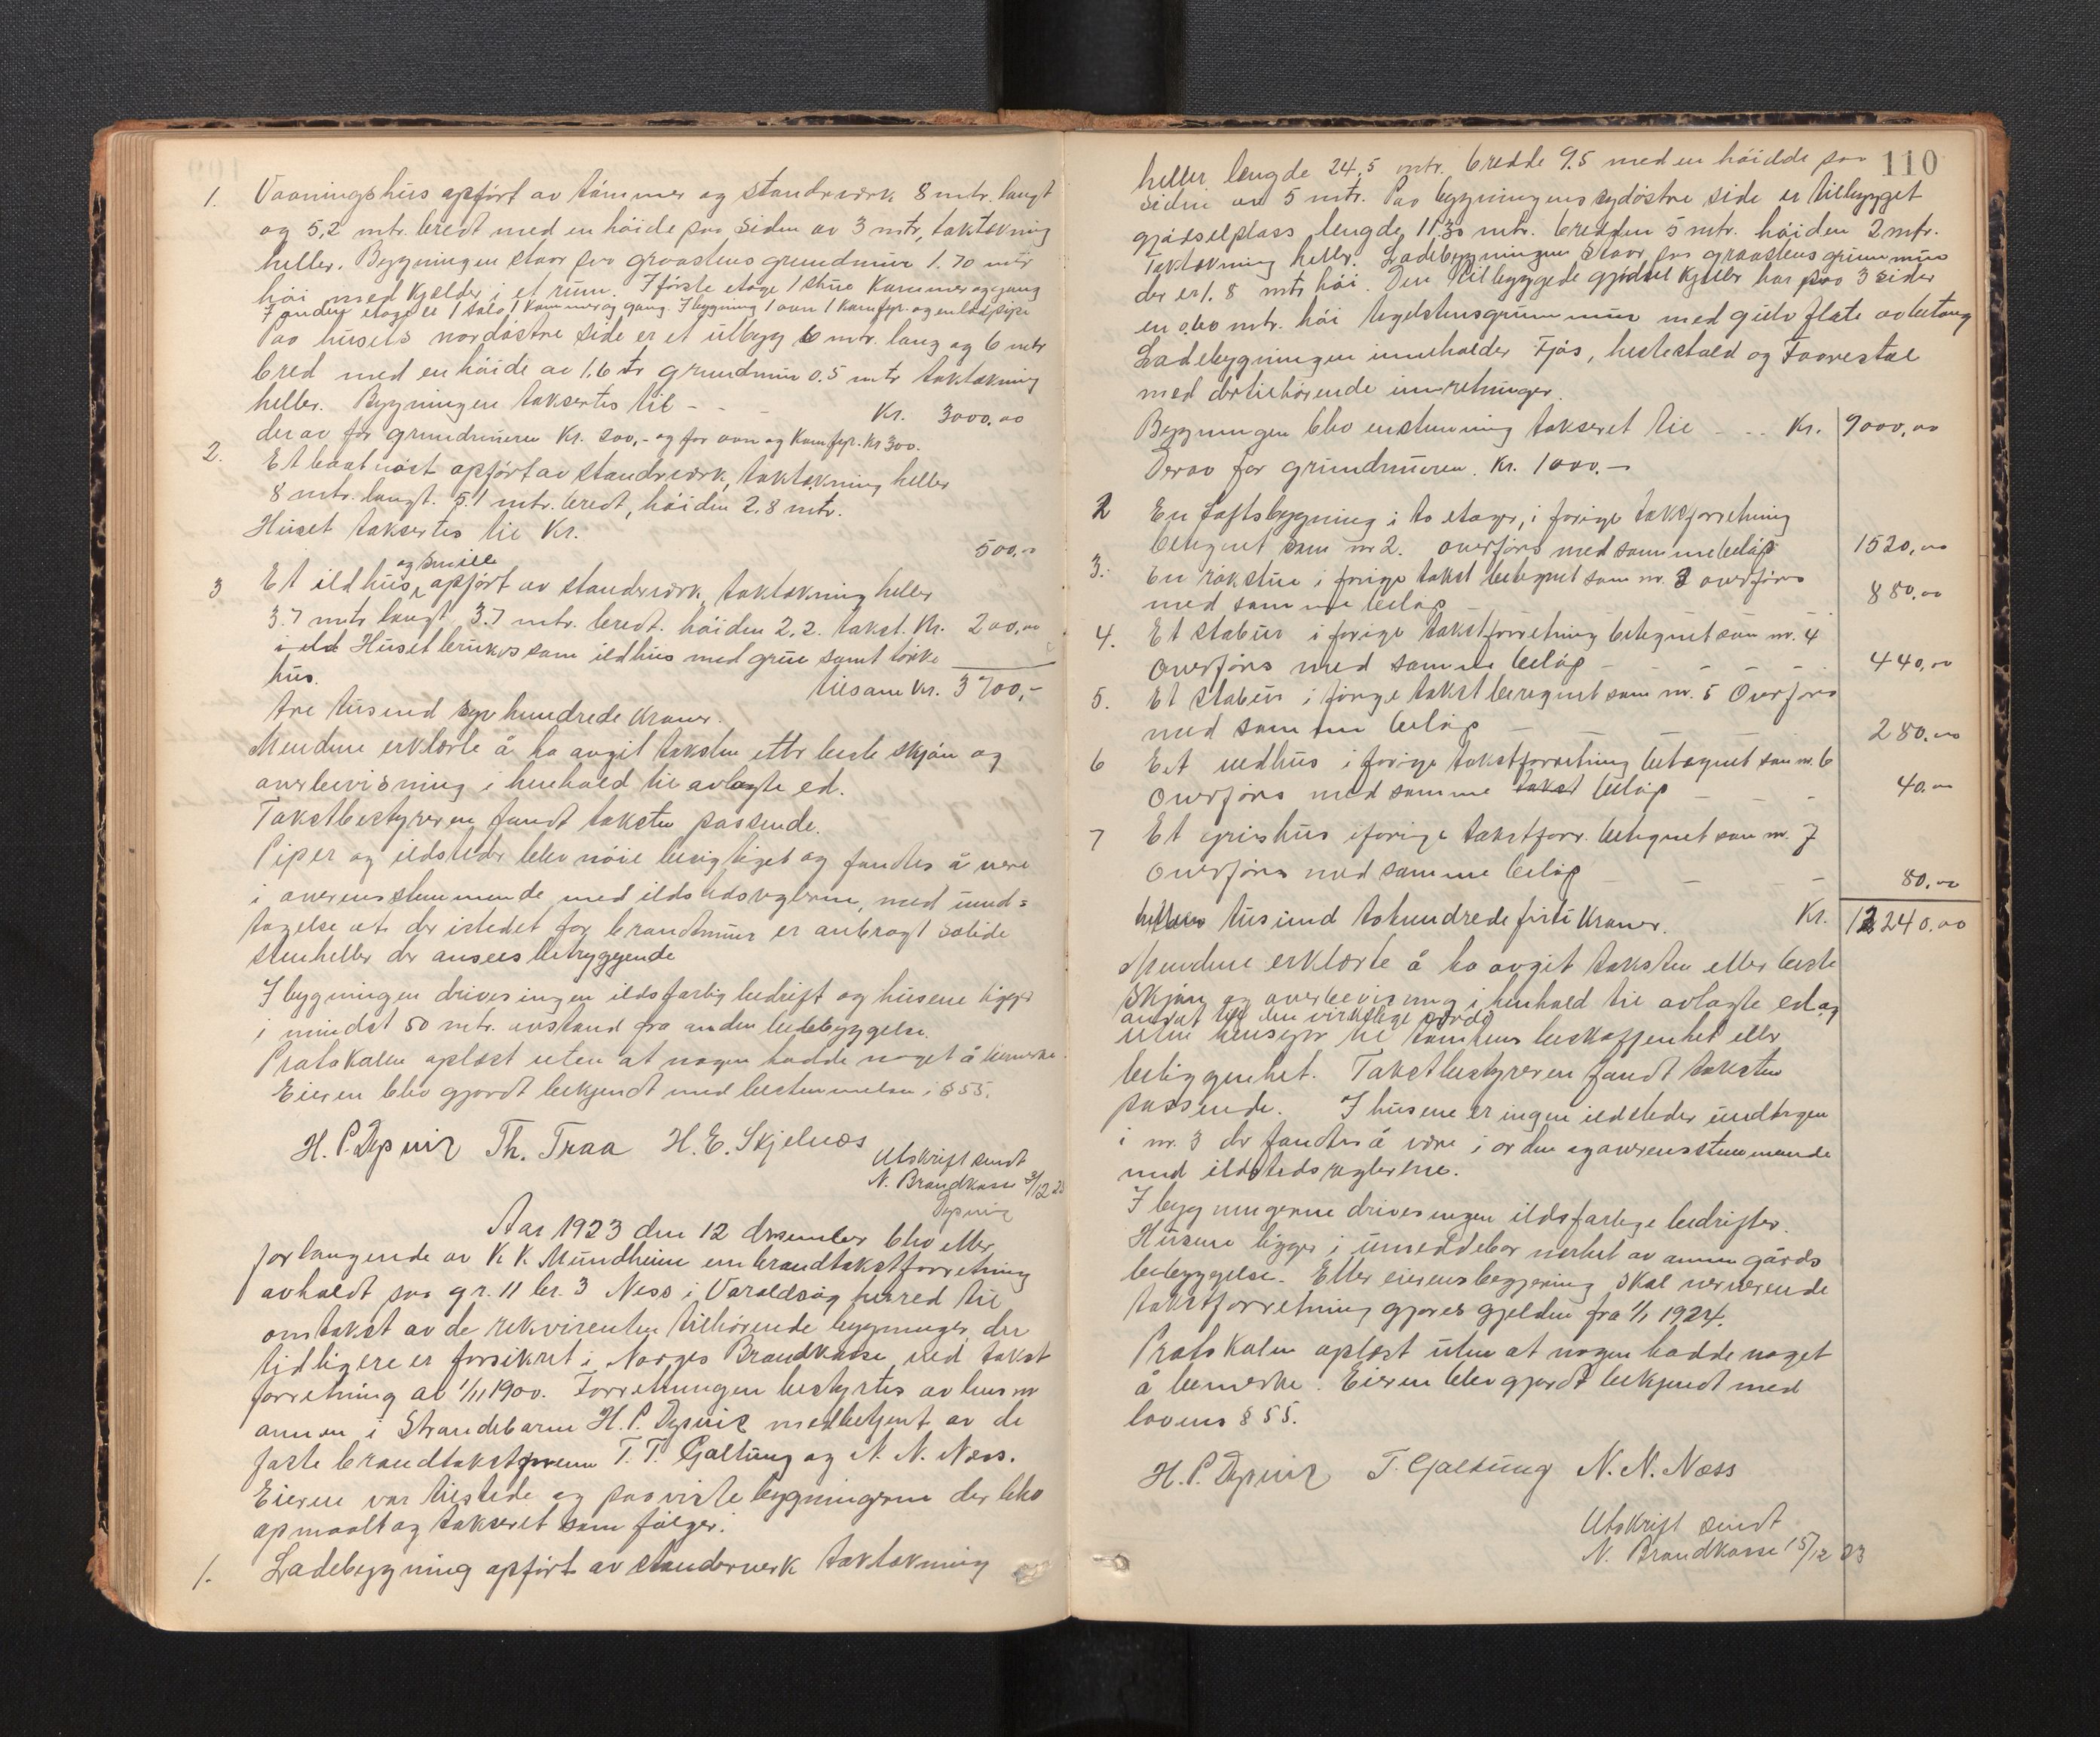 1. Vaaningshus opført av tømmer og standrværk 8 mtr. langt
og 5,2 mtr. bredt med en høide paa siden av 3 mtr, taktækning
heller. Bygningen staar paa graastens grundmur 1.70 mtr
høi med kjelder i et rum. I første etage 1 stue Kammer og gang
I anden etage er 1 sal o 1 kammer og gang. I bygning 1 ovn 1 Komfyr. og en
Paa husets nordøstre side er et utbygg 6 mtr. lang og 6 mtr
bred med en høide av 1.6 tr grundmur 0.5 mtr taktækning
heller. Bygningen taksertes til - - - Kr. 3000,00
derav for grundmuren Kr. 200,- og for ovn og Komfyr. Kr 300.
2. Et baatnøst opført av standrværk, taktækning heller
8 mtr. langt. 5.1 mtr. bredt, høiden 2.8 mtr.
Huset taksertes til Kr. 500,00
og Smille
3 Et ildhus, opført av standerværk, taktækning heller
3.7 mtr langt 3.7 mtr. bredt. høiden 2,2. takst. Kr. 200,00
i ild Huset brukes som ildhus med grue samt tørke
hus. tilsam Kr. 3700,-
tre tusind syv hundrede Kroner.
Mendene erklærte å ha avgit taksten efter beste skjøn og
overbevisning i henhold til avlagte ed.
Takstbestyreren fandt taksten passende.
Piper og ildsteder blev nøie besigtiget og fandtes å være
i overensstemmende med ildstedsreglerne, med und=
tagelse at der istedet for brandmur er anbragt solide
stenheller der ansees betryggende
I bygningen drives ingen ildsfarlig bedrift og husene ligger
i mindst 50 mtr. avstand fra anden bebebyggelse.
Protokolen oplæst uten at nogen hadde noget å bemerke.
Eieren blev gjordt bekjendt med bestemmelsen i § 55.
H. P. Dysvik Th. Traa H. E. Skjelnæs
Utskrift sendt
N. Brandkasse 3/12 23
Dysvik
Aar 1923 den 12 desember blev efter
forlangende av K. K. Mundheim en brandtakstforretning
avholdt paa gr. 11 br. 3 Ness i Varaldsøy herred til
omtakst av de rekvirenten tilhørende bygninger, der
tidligere er forsikret i Norges Brandkasse ved takst
forretning av 1/11 1900. Forretningen bestyrtes av lensm
annen i Strandebarm H. P. Dysvik medbetjent av de
faste brandtakstmenn T. T. Galtung og N. N. Næss.
Eieren var tilstede og paaviste bygningerne der blev
opmaalt og taksert som følger:
1. Ladebygning opført av standerverk taktækning
110
heller. lengde 24,5 mtr. bredde 9.5 med en høidde paa
siden av 5 mtr. Paa bygningens sydøstre side er tilbygget
gjødselplass lengde 11.30 mtr. bredden 5 mtr. høiden 2 mtr.
Taktækning heller. Ladebygningen staar paa graastens grunnmur
der er 1.8 mtr høi. Den tilbyggede gjødsel kjeller har paa 3 sider
en 0.60 mtr. høi teglstensgrunnmur med gulv flate av betong
Ladebygningen inneholder Fjøs, hestestald og Faarestal
med dertilhørende innretninger.
Bygningen blev enstemmig taksert til - - - Kr. 9000,00
Derav for grundmuren. Kr. 1000.-
2 En Loftsbygning i to etager, i forige takstforretning
betegnet som nr 2. overføres med samme beløp 1520,00
3. En røkstue i forige takst betegnet som nr. 3 overføres
med samme beløp 880,00
4. Et stabur i forige takstforretning betegnet som nr. 4
overføres med samme beløp - - - - - 440,00
5. Et Stabur i forige takst betegnet som nr. 5 Overføres
med samme beløp - - - 280,00
6 Eet vedhus i forige takstforretning betegnet som nr. 6
overføres med samme takst beløp - - - 40,00
7 Et grishus i forige takstforr. betegnet som nr. 7
overføres med samme beløp - - - 80,00
tusind tohundrede firti Kroner. Kr. 12240.00
Mendene erklærte å ha avgit taksten efter beste
Skjøn og overbevisning i henhold til avlagte ed og
ansat til den virkelige værdi
uten hensyn til tomtens beskaffenhet eller
beliggenhet. Takstbestyreren fandt taksten
passende. I husene er ingen ildsteder undtagen
i nr. 3 der fandtes å være i orden og overensstemmende
med ildstedsreglerne.
I bygningerne drives ingen ildsfarlige bedrifter.
Husene ligger i umiddelbar nærhet av annen gårds
bebyggelse. Efter eierens begjering skal nerværende
takstforretning gjøres gjelden fra 1/1 1924.
Protokolen oplæst uten at nogen hadde noget
å bemerke. Eieren blev gjordt bekjendt med
lovens § 55.
H. P. Dysvik T. Galtung N. N. Næss
Utskrift sendt
N. Brandkasse 15/12 23